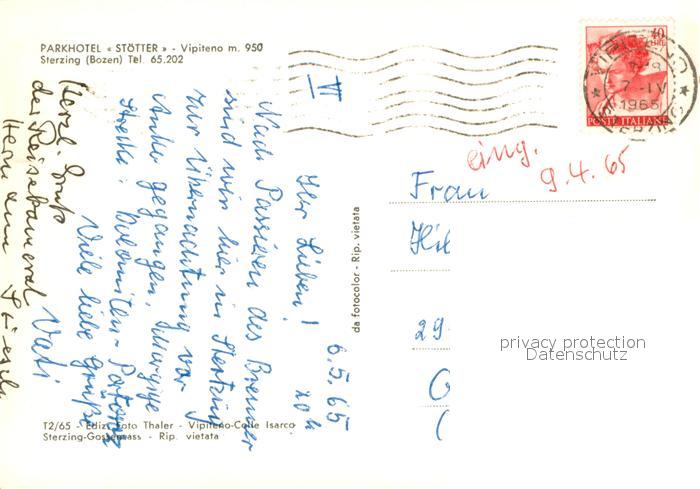 PARKHOTEL « STÖTTER » - Vipiteno m. 950
Sterzing (Bozen) Tel. 65.202
VI
40
LIRE
7 - IV
1965
POSTE ITALIANE
eing.
9.4.65
6.5.65
20h
Ihr Lieben!
Nach Passieren des Brenner
sind wir hier in Sterzing
zur Übernachtung vor
Anker gegangen. Morgige
Strecke: Dolomiten-
Viele liebe Grüße
Vati
Herzl. Gruß
der Reisekamerad
Frau
29
da fotocolor - Rip. vietata
privacy protection
Datenschutz
T2/65 - Ediz. Foto Thaler - Vipiteno-Colle Isarco
Sterzing-Gossensass - Rip. vietata